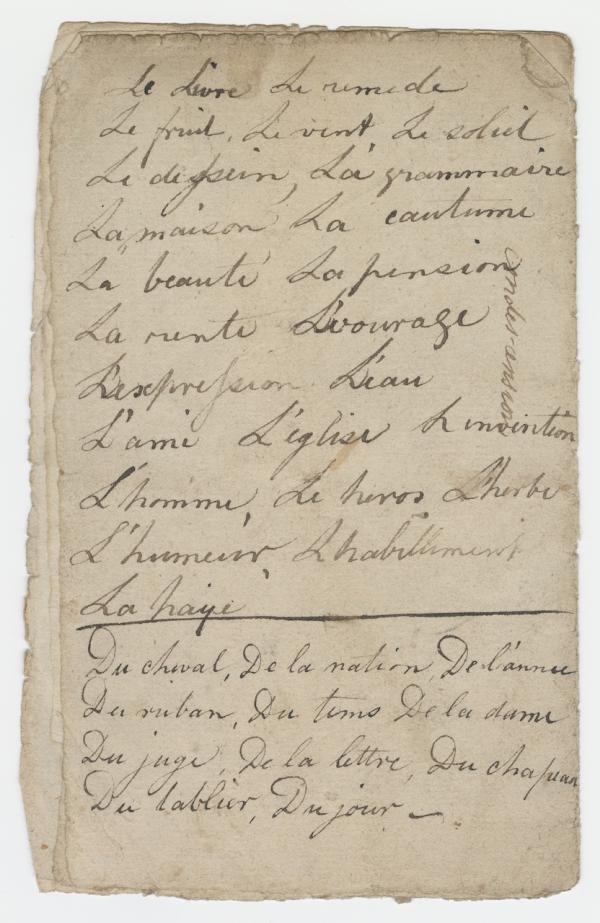 Le Livre Le remede
Le fruit, Le vent Le soliel
Le dessein, La grammaire
La maison La cautume
La beauté La pension
La rente L'vourage
L'expression L'eau
L'ami L'église L'invention
L'homme, Le heros, L'herbe
L'humeur, L'habillement
La haye
Du cheval, De la nation, De l'année
Du ruban, Du tems De la dame
Du juge, De la lettre, Du chapeau
Du tablier, Du jour